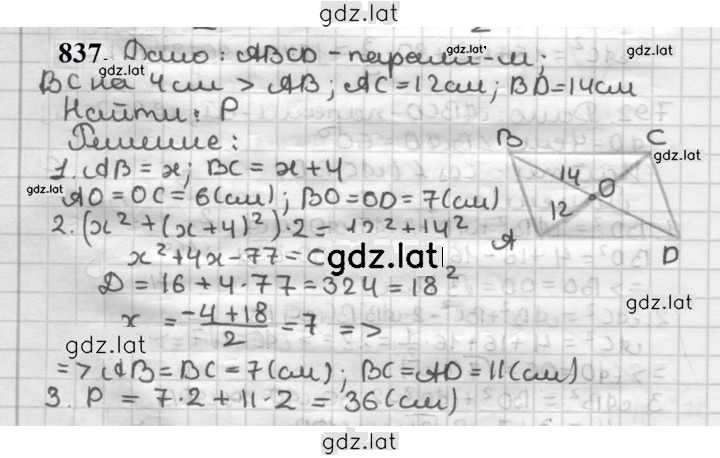 gdz.lat
837. Дано: ABCD - паралл-м;
gdz.lat gdz.lat
BC на 4 см > AB; AC = 12 см; BD = 14 см
Найти: P
Решение:
1. AB = x; BC = x + 4
gdz.lat
AO = OC = 6 (см); BO = OD = 7 (см)
2. (x² + (x + 4)²) · 2 = 12² + 14²
x² + 4x - 77 = 0
gdz.lat
D = 16 + 4 · 77 = 324 = 18²
x = (-4 + 18)/2 = 7 =>
gdz.lat
=> AB = BC = 7 (см); BC = AD = 11 (см)
3. P = 7 · 2 + 11 · 2 = 36 (см)
B C
gdz.lat
14 O
12
A D
gdz.lat
gdz.lat
gdz.lat